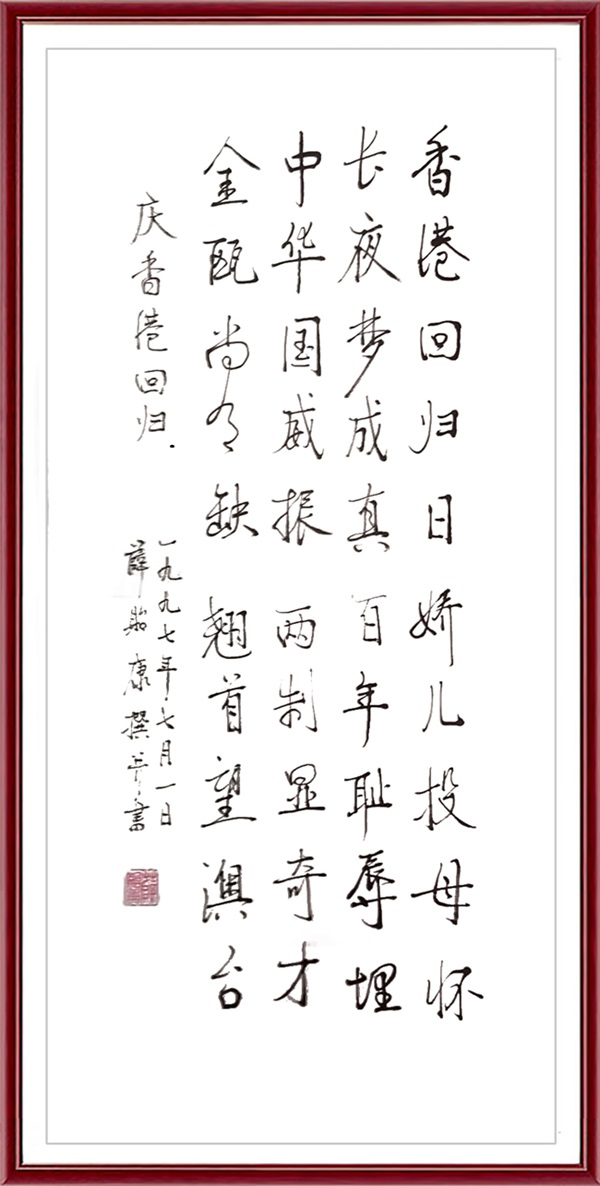 香港回归日娇儿投母怀
长夜梦成真百年耻辱埋
中华国威振两制显奇才
金瓯尚有缺翘首望澳台
庆香港回归.
一九九七年七月一日
薛贻康撰并书